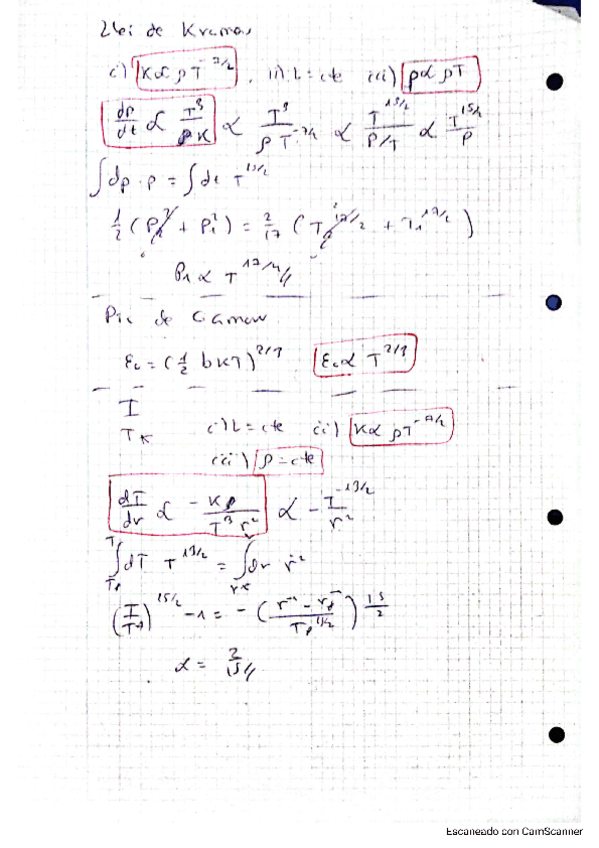 2 lei de Kramas
i) K ∝ ρT^-7/2, ii) L = cte iii) p ∝ ρT
dp/dt ∝ T^3/ρK ∝ T^3/ρT^-7/2 ∝ T^13/2/P/T ∝ T^15/2/P
∫dp·p = ∫dt T^15/2
1/2 (P^2 + P₁^2) = 2/17 (T^17/2 + T₁^17/2)
P₁ ∝ T^17/4//
Pic de Gamow
ε₀ = (1/2 bKT)^2/3 ε₀ ∝ T^2/3
I
T* i) L = cte ii) K ∝ ρT^-7/2
iii) ρ = cte
dT/dr ∝ -Kρ/T^3 r^2 ∝ -T^-13/2/r^2
∫dT T^13/2 = ∫dr r^2
(T/T*)^15/2 - 1 = -(r^-1 - r^-1/T^15/2) 15/2
α = 2/15//
Escaneado con CamScanner